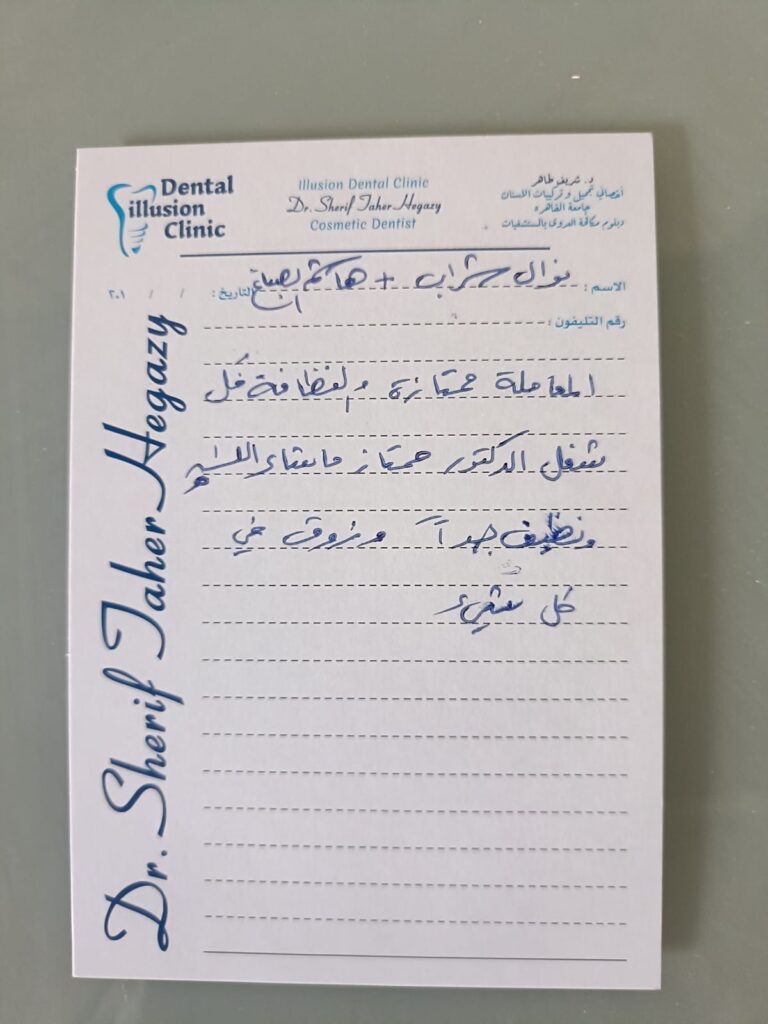 Dental
illusion
Clinic
Illusion Dental Clinic
Dr. Sherif Taher Hegazy
Cosmetic Dentist
د. شريف طاهر
أخصائي تجميل و تركيبات الاسنان
جامعة القاهره
دبلوم مكافحة العدوى بالمستشفيات
الاسم : نوال شراب + هاشم الصباغ
التاريخ : / / ٢٠١
رقم التليفون :
المعاملة ممتازة والنظافة كل
شغل الدكتور ممتاز ماشاء الله
ونظيف جداً وزوق في
كل شيء
Dr. Sherif Taher Hegazy